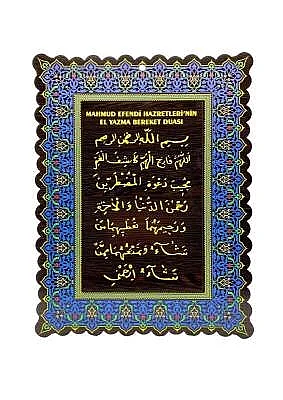 MAHMUD EFENDİ HAZRETLERİ'NİN
EL YAZMA BEREKET DUASI
بسم الله الرحمن الرحيم
اللهم فارج الهم كاشف الغم
مجيب دعوة المضطرين
رحمن الدنيا والآخرة
ورحيمهما تعطيهما من
تشاء وتمنعهما من
تشاء ارحمني